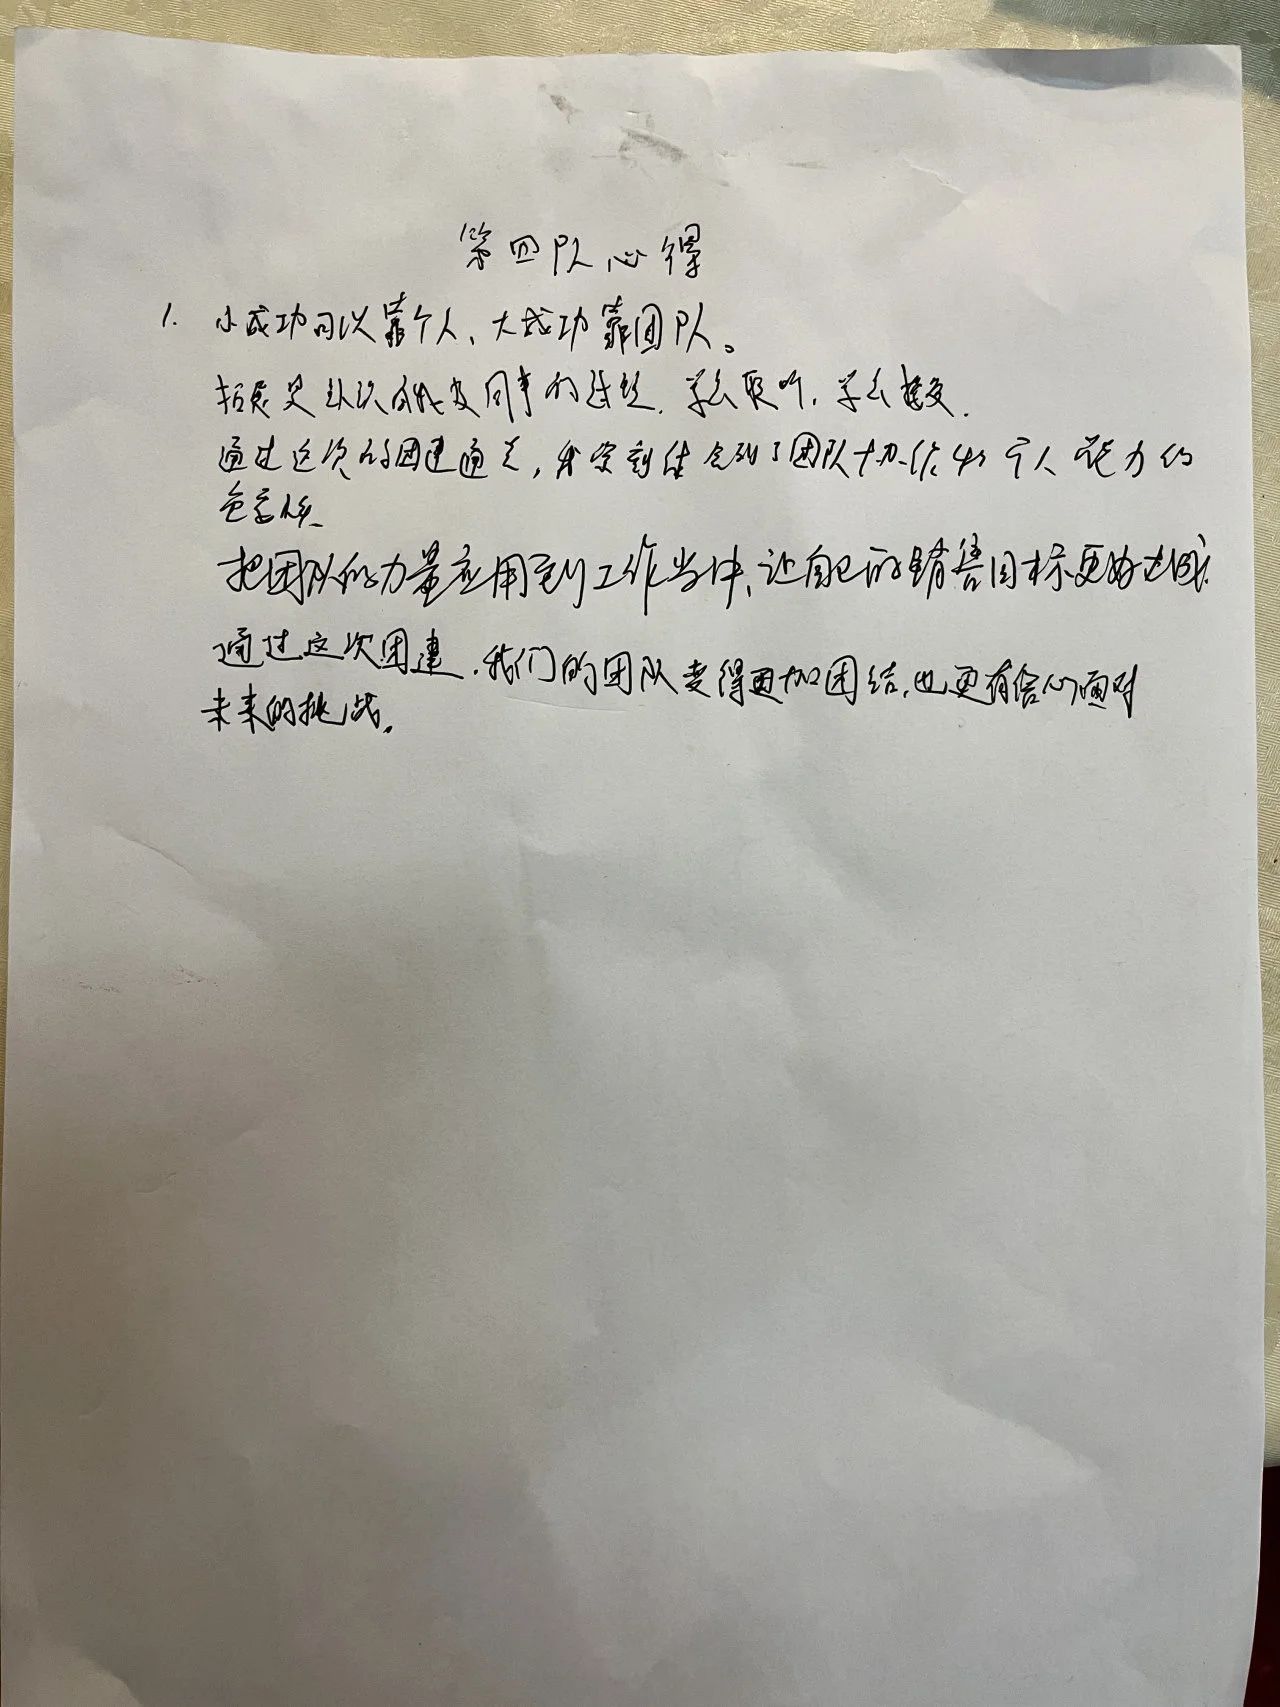 第四队心得
1. 小成功可以靠个人、大成功靠团队。
认识自我及同事的过程. 学会聆听, 学会接受.
通过这次的团建通关, 我深刻体会到了团队协作和个人能力的
把团队的力量应用到工作当中、让自己的销售目标更好达成.
通过这次团建.我们的团队变得更加团结.也更有信心面对
未来的挑战.